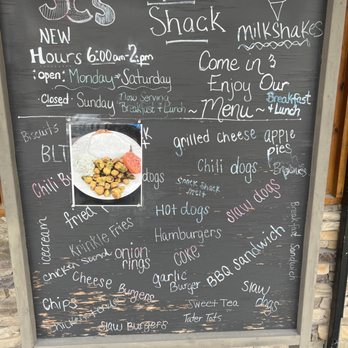 Shack
milkshakes
NEW
Hours 6:00am-2pm
:Open: Monday - Saturday
·Closed· Sunday
Now Serving
Breakfast & Lunch
Come in &
Enjoy Our
Breakfast
& Lunch
Menu
Biscuits
BLT
grilled cheese
apple
pies
Chili dogs
Chili
dogs
Snack Shack
slaw dogs
fried
Hot dogs
Krinkle Fries
Hamburgers
Icecream
onion
rings
Coke
BBQ sandwich
Breakfast Sandwich
Cheese Burgers
garlic
Burger
Slaw
dogs
Chips
Sweet Tea
Slaw Burgers
Tater Tots